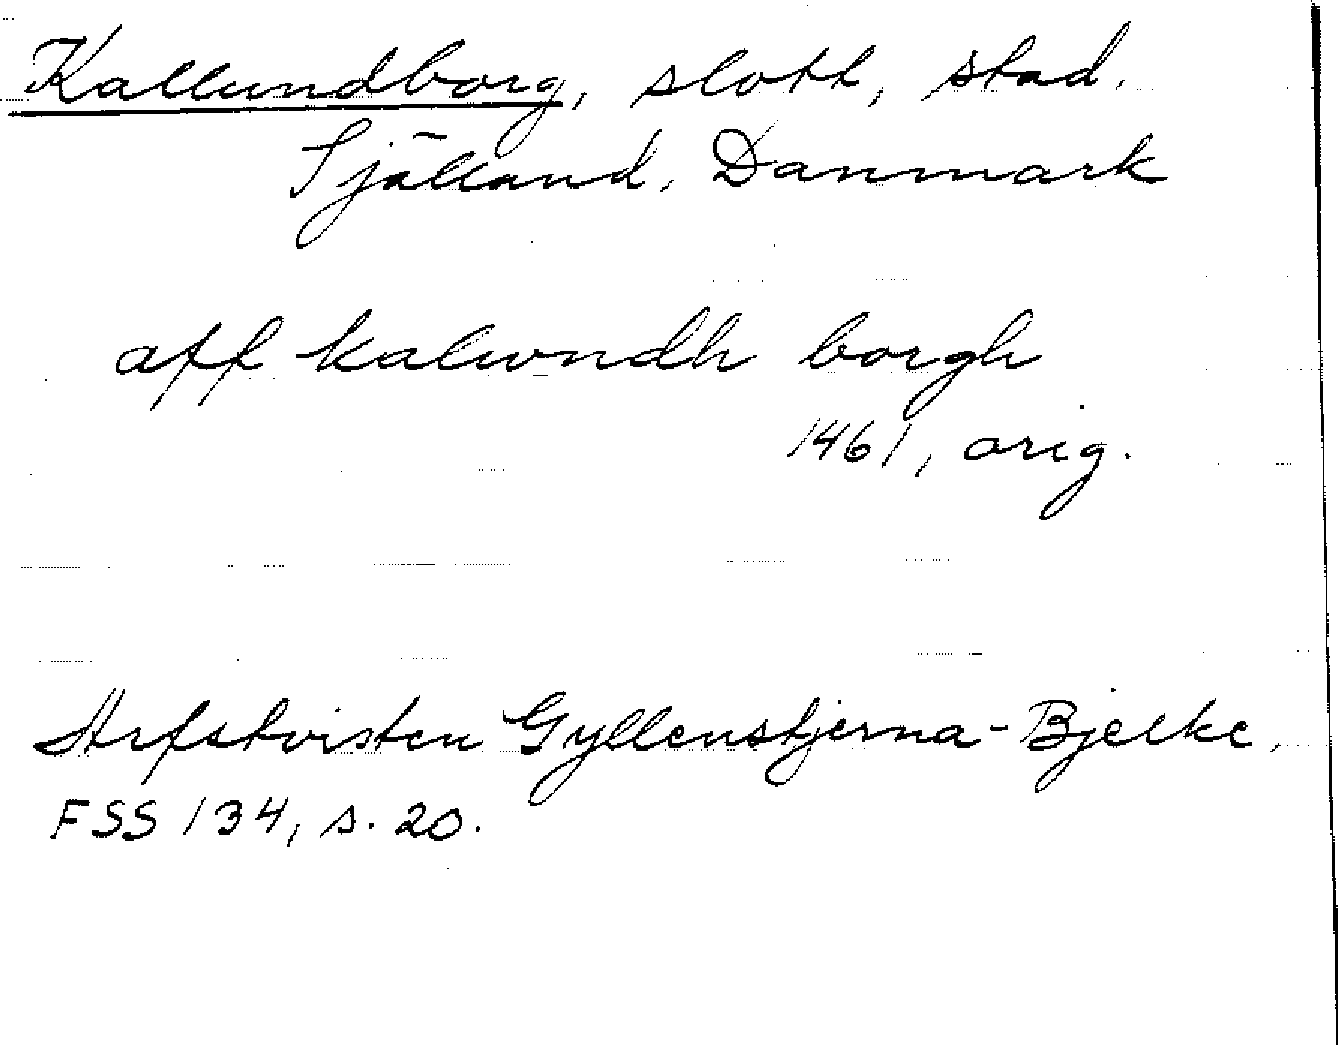 Kallundborg, slott, stad.
Själland, Danmark
aff kalwndh borgh
1461, orig.
Arfstvisten Gyllenstjerna-Bjelke,
FSS 134, s. 20.